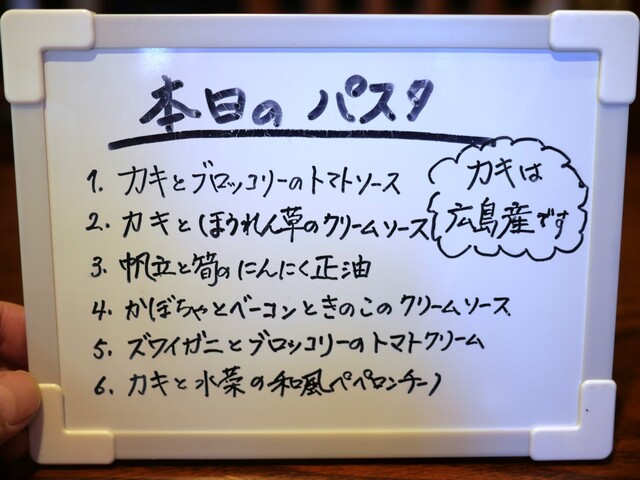 本日のパスタ
1. カキとブロッコリーのトマトソース
2. カキとほうれん草のクリームソース
3. 帆立と筍のにんにく正油
4. かぼちゃとベーコンときのこのクリームソース
5. ズワイガニとブロッコリーのトマトクリーム
6. カキと水菜の和風ペペロンチーノ
カキは
広島産です